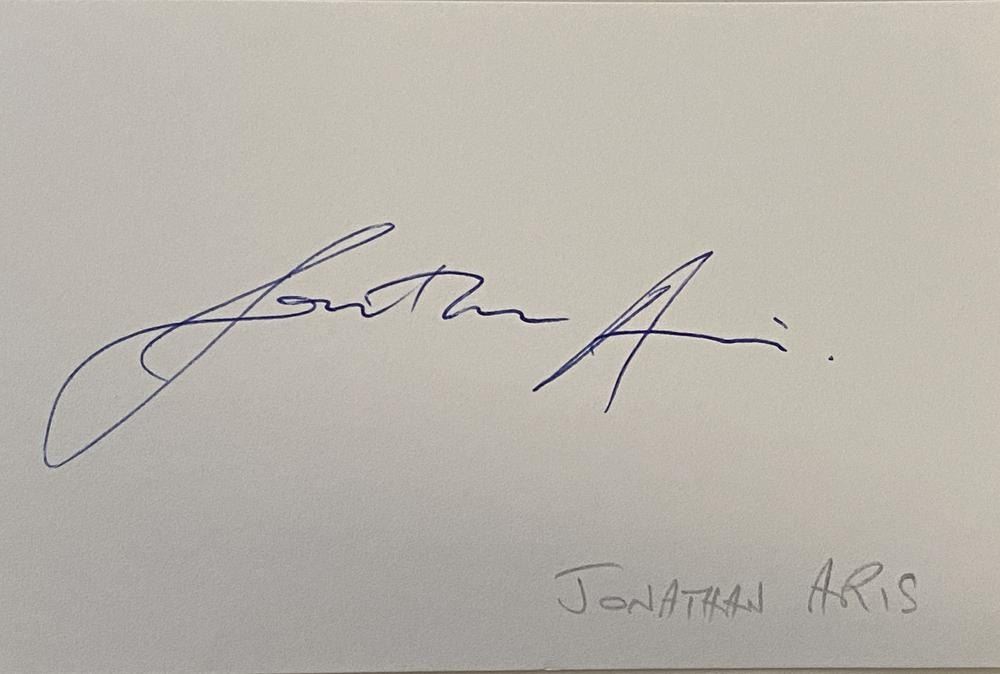 Jonathan Aris.
JONATHAN ARIS